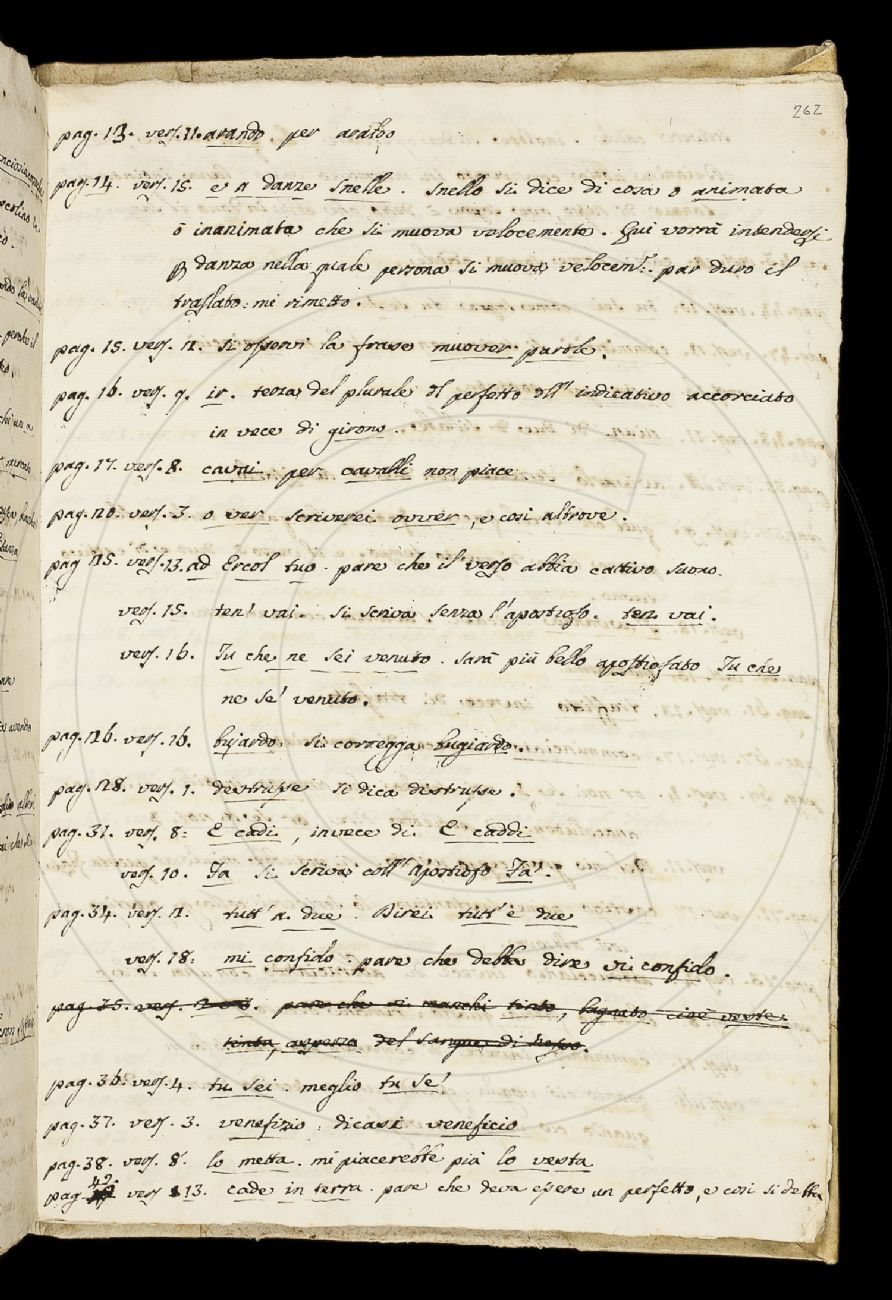 262
pag. 13. vers. 11. arando per aratro
pag. 14. vers. 15. e a danze snelle. snello si dice di cosa o animata
ò inanimata che si muova velocemente. Qui vorrà intendersi
danza nella quale persona si muova velocem.te: par duro il
traslato: mi rimetto.
pag. 15. vers. 2. si osservi la frase muover parole.
pag. 16. vers. 9. ir. terza del plurale del perfetto dell' indicativo accorciato
in vece di girono.
pag. 17. vers. 8. cavai per cavalli non piace
pag. 20. vers. 3. o ver scriverei ovver, e così altrove.
pag 25. vers. 13. ad Ercol tuo. pare che il verso abbia cattivo suono.
vers. 15. ten' vai. si scriva senza l'apostrofo. ten vai.
vers. 16. Tu che ne sei venuto. sarà più bello apostrofato Tu che
ne se' venuto.
pag. 26. vers. 16. bujardo si corregga bugiardo.
pag. 28. vers. 1. destrusse si dica distrusse.
pag. 31. vers. 8: E cadi, invece di E caddi
vers. 10. Fa si scriva coll' apostrofo Fa'.
pag. 34. vers. 2. tutt' a due. Direi tutt' e due
vers. 18: mi confido: pare che debba dire vi confido.
pag. 35. vers. pare che vi manchi tinto, bagnato cioè veste
tinta, aspersa del sangue di Nesso.
pag. 36. vers. 4. tu sei. meglio tu se'
pag. 37. vers. 3. venefizio: dicasi veneficio
pag. 38. vers. 8. lo metta. mi piacerebbe più lo vesta
pag. 42. vers 13. cade in terra. pare che deva essere un perfetto, e così si debba